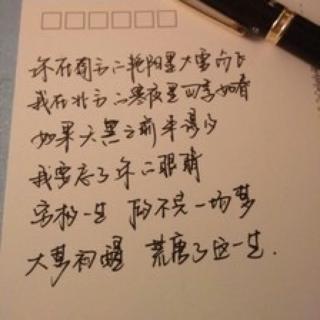 你在南方的艳阳里大雪纷飞
我在北方的寒夜里四季如春
如果天黑之前来得及
我要忘了你的眼睛
穷极一生 做不完一场梦
大梦初醒 荒唐了这一生.